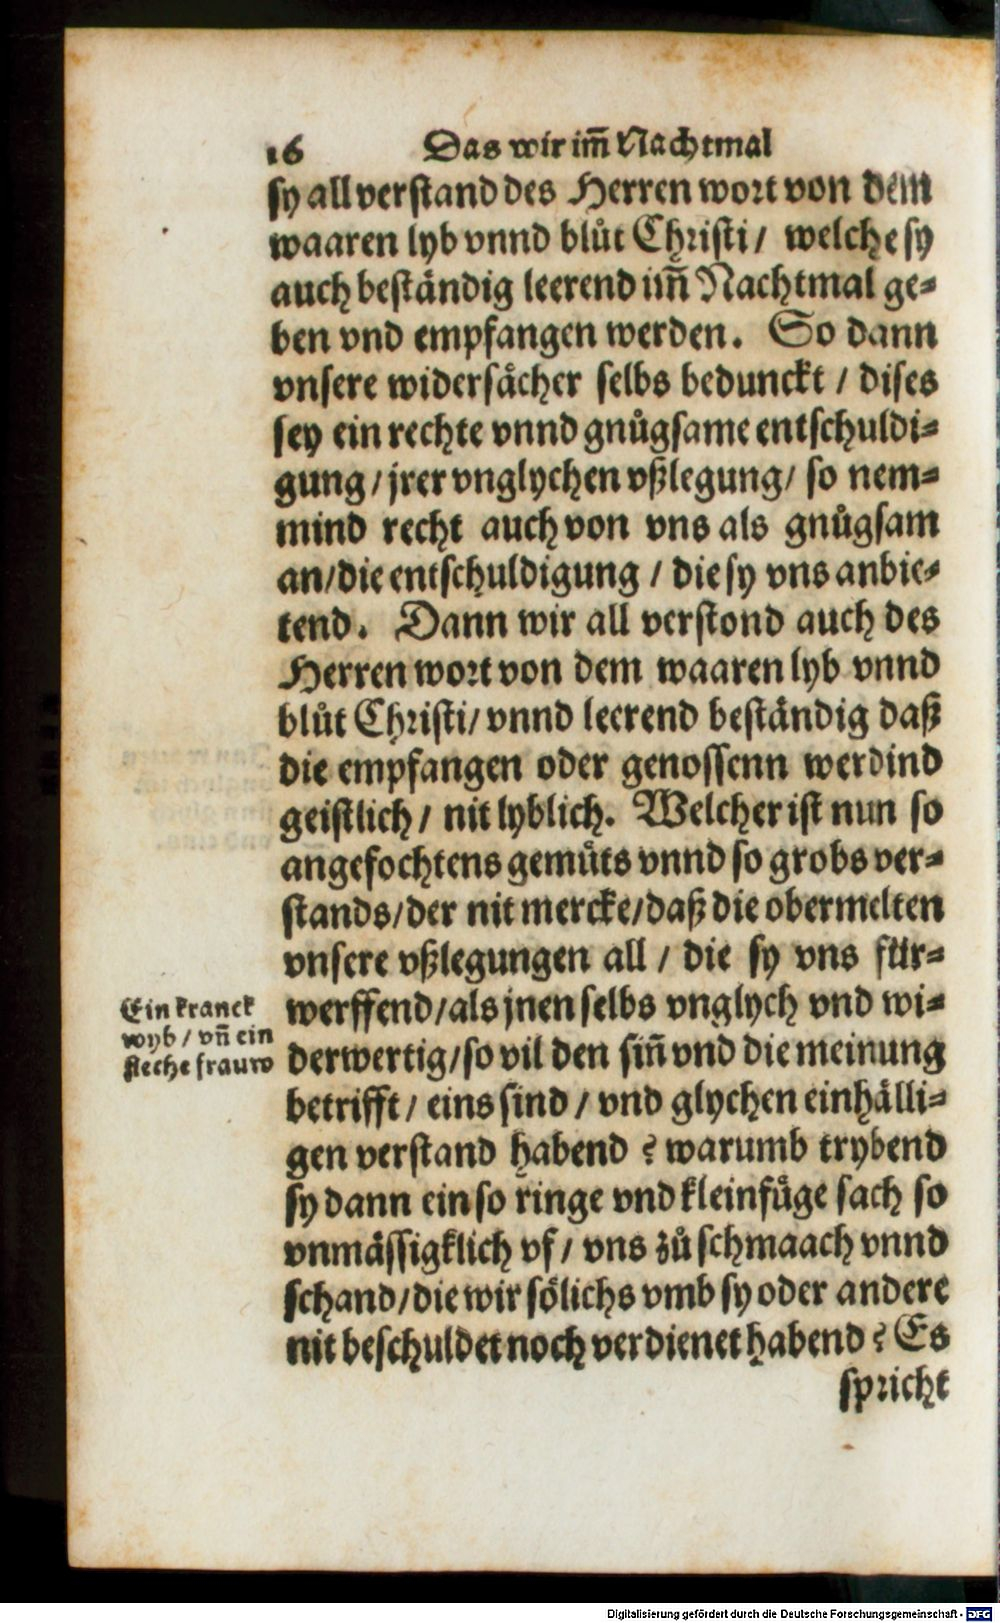 16 Das wir im̃ Nachtmal
sy all verstand des Herren wort von dem
waaren lyb vnnd blůt Christi / welche sy
auch beståndig leerend im̃ Nachtmal ge⸗
ben vnd empfangen werden. So dann
vnsere widersåcher selbs bedunckt / dises
sey ein rechte vnnd gnůgsame entschuldi⸗
gung / jrer vnglychen vßlegung / so nem⸗
mind recht auch von vns als gnůgsam
an / die entschuldigung / die sy vns anbie⸗
tend. Dann wir all verstond auch des
Herren wort von dem waaren lyb vnnd
blůt Christi / vnnd leerend beståndig daß
die empfangen oder genossenn werdind
geistlich / nit lyblich. Welcher ist nun so
angefochtens gemůts vnnd so grobs ver⸗
stands / der nit mercke / daß die obermelten
vnsere vßlegungen all / die sy vns für⸗
Ein kranck
wyb / vñ ein
sieche frauw
werffend / als jnen selbs vnglych vnd wi⸗
derwertig / so vil den siñ vnd die meinung
betrifft / eins sind / vnd glychen einhålli⸗
gen verstand habend ? warumb trybend
sy dann ein so ringe vnd kleinfůge sach so
vnmåssigklich vf / vns zů schmaach vnnd
schand / die wir sőlichs vmb sy oder andere
nit beschuldet noch verdienet habend ? Es
spricht
Digitalisierung gefördert durch die Deutsche Forschungsgemeinschaft - DFG